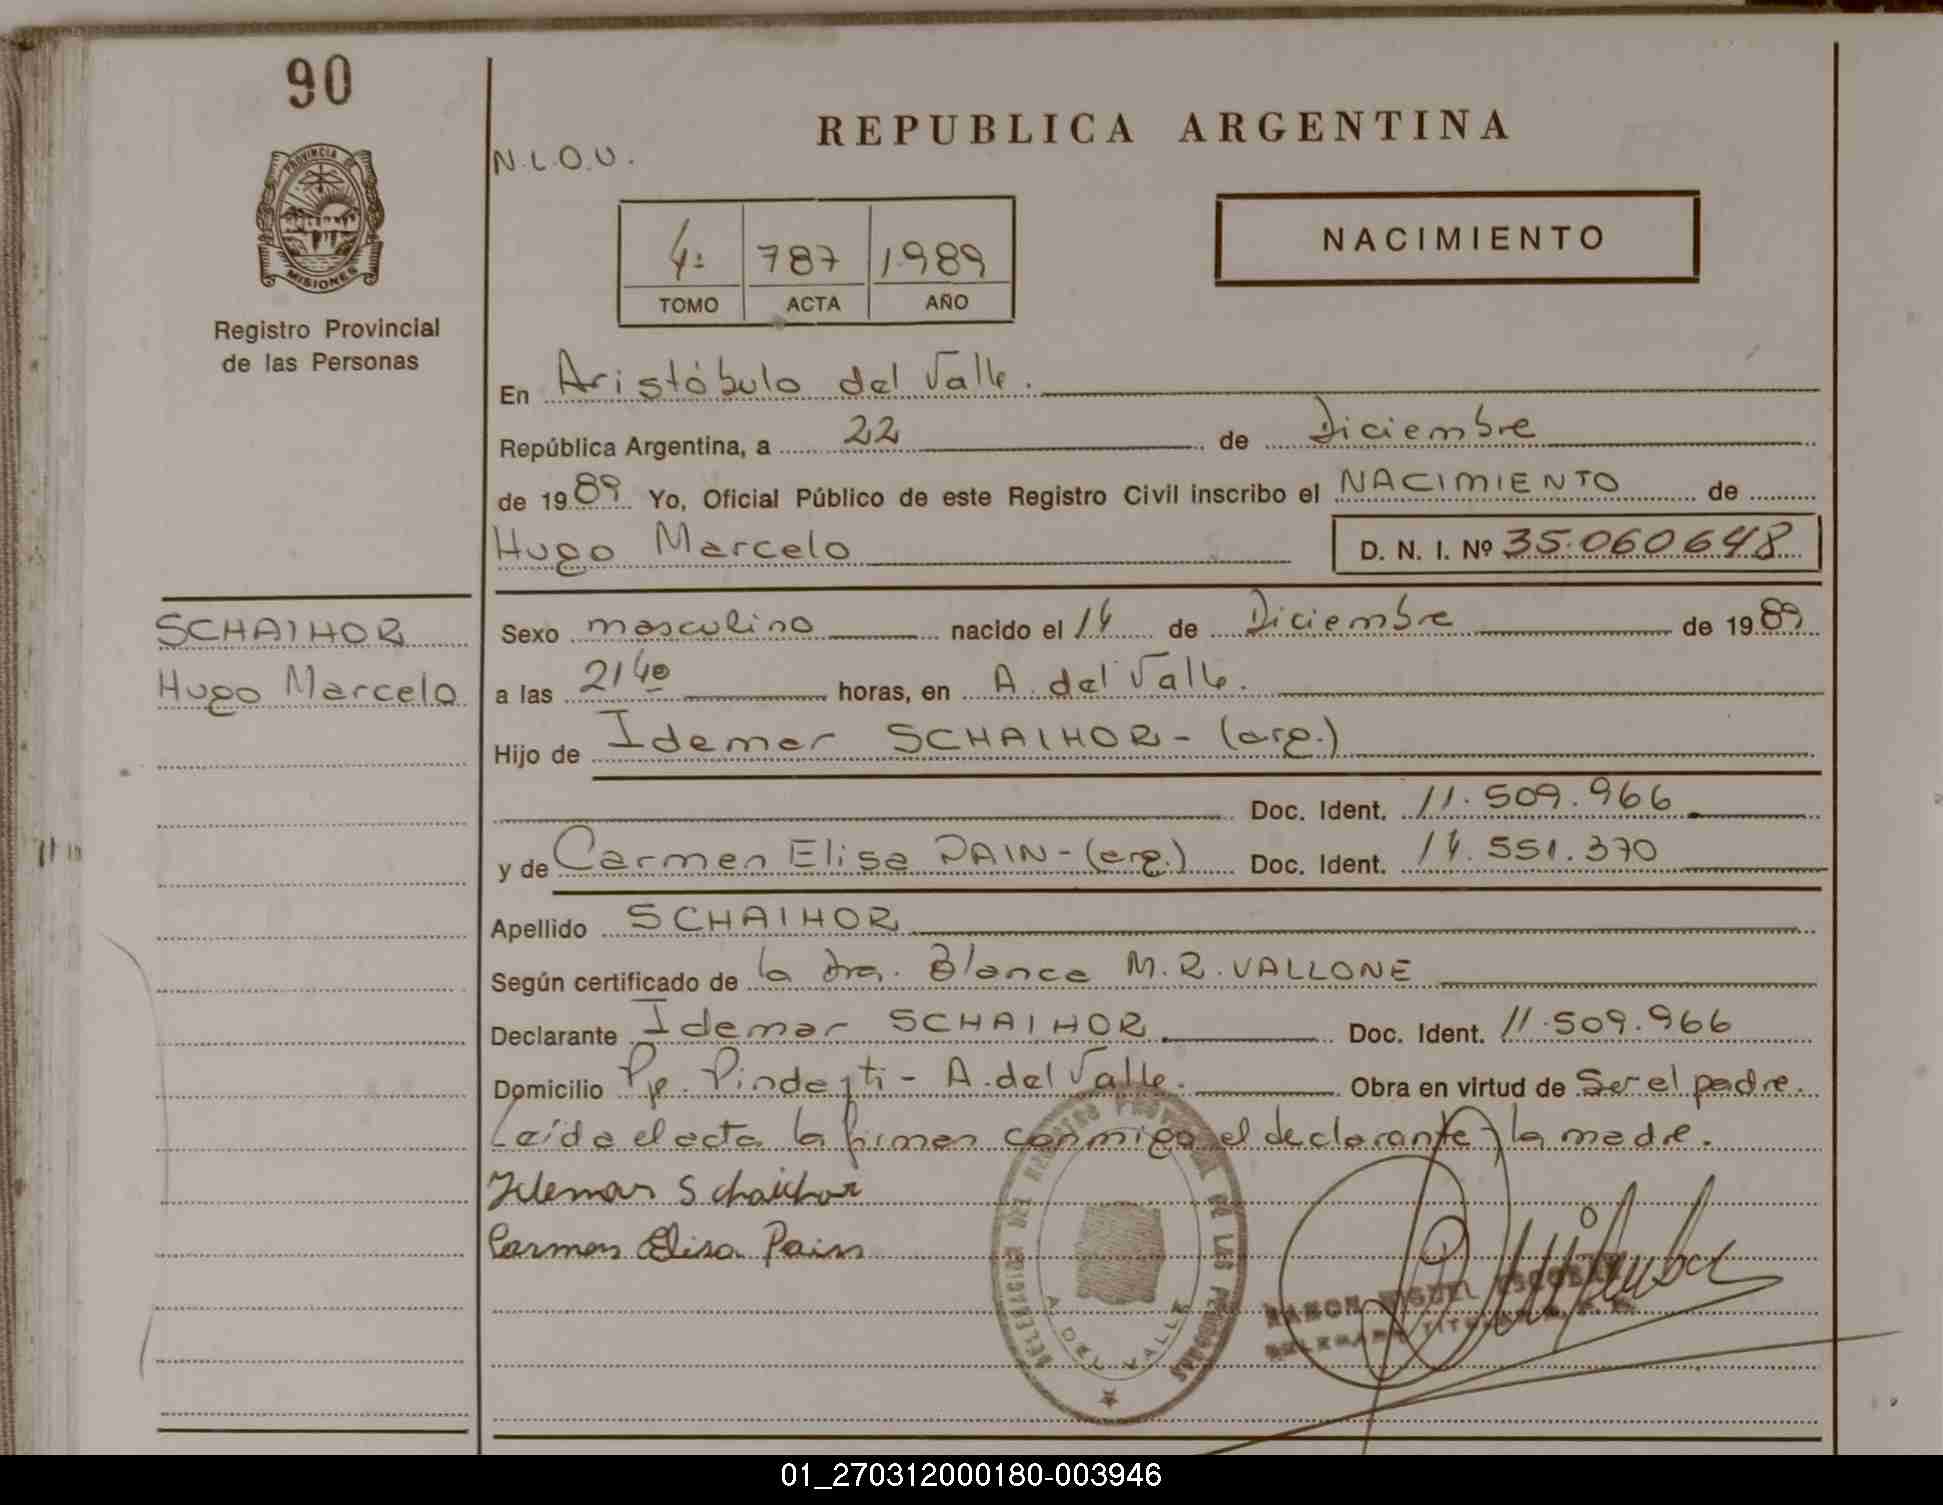 90
REPUBLICA ARGENTINA
N.L.O.U.
PROVINCIA DE
MISIONES
Registro Provincial
de las Personas
NACIMIENTO
4º 787 1989
TOMO ACTA AÑO
En Aristóbulo del Valle.
República Argentina, a 22 de Diciembre
de 1989 Yo, Oficial Público de este Registro Civil inscribo el NACIMIENTO de
Hugo Marcelo D. N. I. Nº 35.060.648
SCHAIHOR
Hugo Marcelo
Sexo masculino nacido el 14 de Diciembre de 1989
a las 21 40 horas, en A. del Valle.
Hijo de Idemar SCHAIHOR - (arg.)
Doc. Ident. 11.509.966
y de Carmen Elisa PAIN - (arg.) Doc. Ident. 14.551.370
Apellido SCHAIHOR
Según certificado de la Dra. Blanca M. R. VALLONE
Declarante Idemar SCHAIHOR Doc. Ident. 11.509.966
Domicilio Pje. Pindaytí - A. del Valle. Obra en virtud de Ser el padre.
Leída el acta la firman conmigo el declarante y la madre.
Idemar Schaihor
Carmen Elisa Pain
DEL REGISTRO PROVINCIAL DE LAS PERSONAS
A. DEL VALLE
RAMON MIGUEL ESCOBAR
TITULAR
01_270312000180-003946